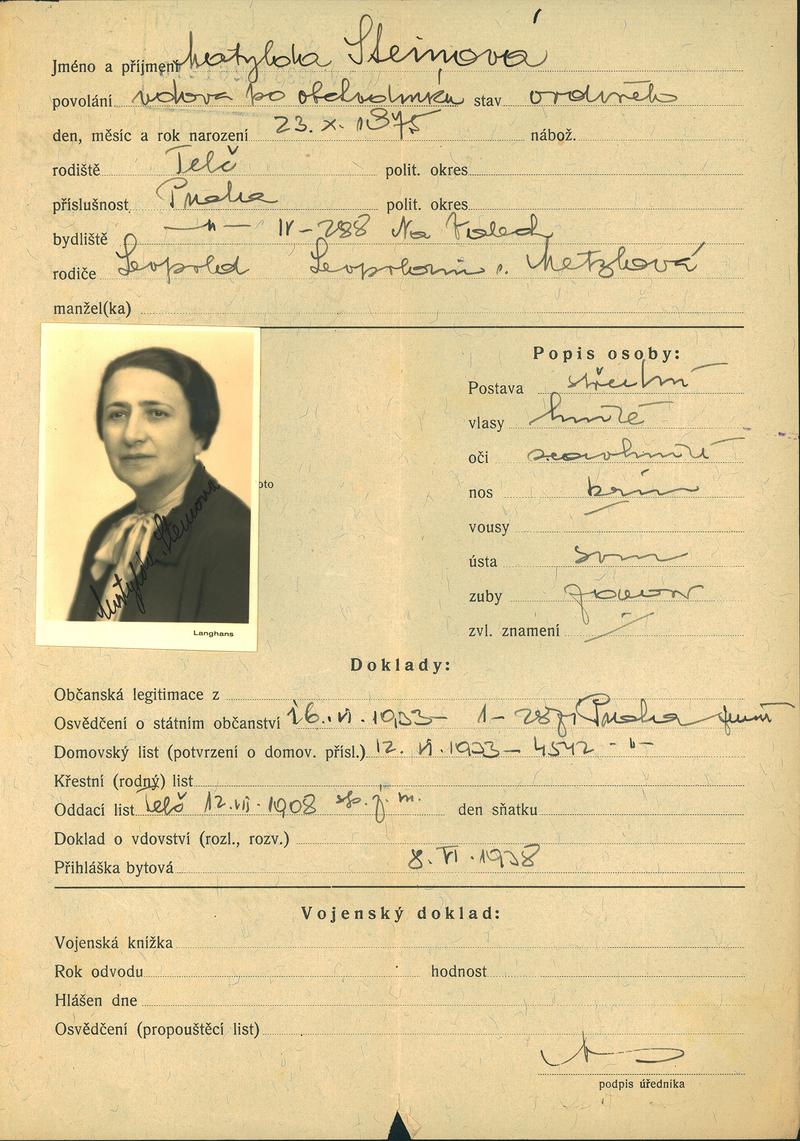 Jméno a příjmení Matylda Steinová
povolání vdova po obchodníku stav ovdověla
den, měsíc a rok narození 23. X. 1875 nábož.
rodiště Telč polit. okres
příslušnost Praha polit. okres
bydliště —"— IV-288 Na
rodiče Leopold Leopoldina r. Metzlová
manžel(ka)
Popis osoby:
Postava střední
vlasy hnědé
oči
oto
nos
vousy
ústa
zuby
zvl. znamení
Matylda Steinová
Langhans
Doklady:
Občanská legitimace z
Osvědčení o státním občanství 16. VI. 1933 Praha
Domovský list (potvrzení o domov. přísl.) 12. VI. 1933 – 4542 -"-
Křestní (rodný) list
Oddací list Telč 12. VII. 1908 den sňatku
Doklad o vdovství (rozl., rozv.)
Přihláška bytová 8. VI. 1938
Vojenský doklad:
Vojenská knížka
Rok odvodu hodnost
Hlášen dne
Osvědčení (propouštěcí list)
podpis úředníka